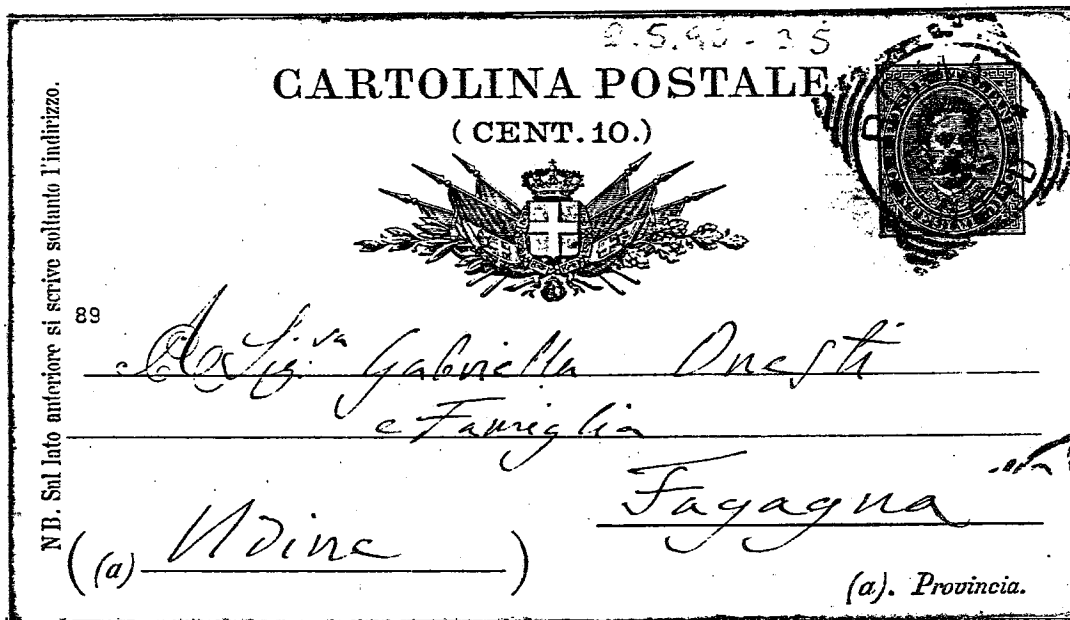 CARTOLINA POSTALE
(CENT. 10.)
NB. Sul lato anteriore si scrive soltanto l'indirizzo.
89
Sig.ra Gabriella Onesti
e Famiglia
Fagagna
((a) Udine)
(a). Provincia.